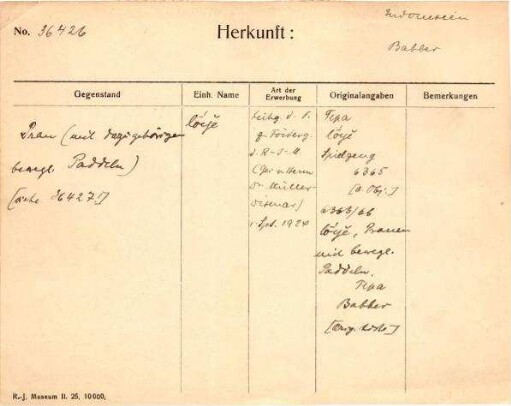 No. 36426
Herkunft:
Indonesien
Babber
Gegenstand
Einh. Name
Art der
Erwerbung
Originalangaben
Bemerkungen
Prau (mit dazugehörige
bewegl. Paddeln)
[siehe 36427!]
löijě
d. V.
z. Förderg.
d. R-J-M
Müller
1924
Tepa
löijě
Spielzeug
6365
[a. Obj.]
6365/66
löijě, Prauen
mit bewegl.
Paddeln.
Tepa
Babber
[Orig. Liste]
R.-J. Museum II. 25, 10000.